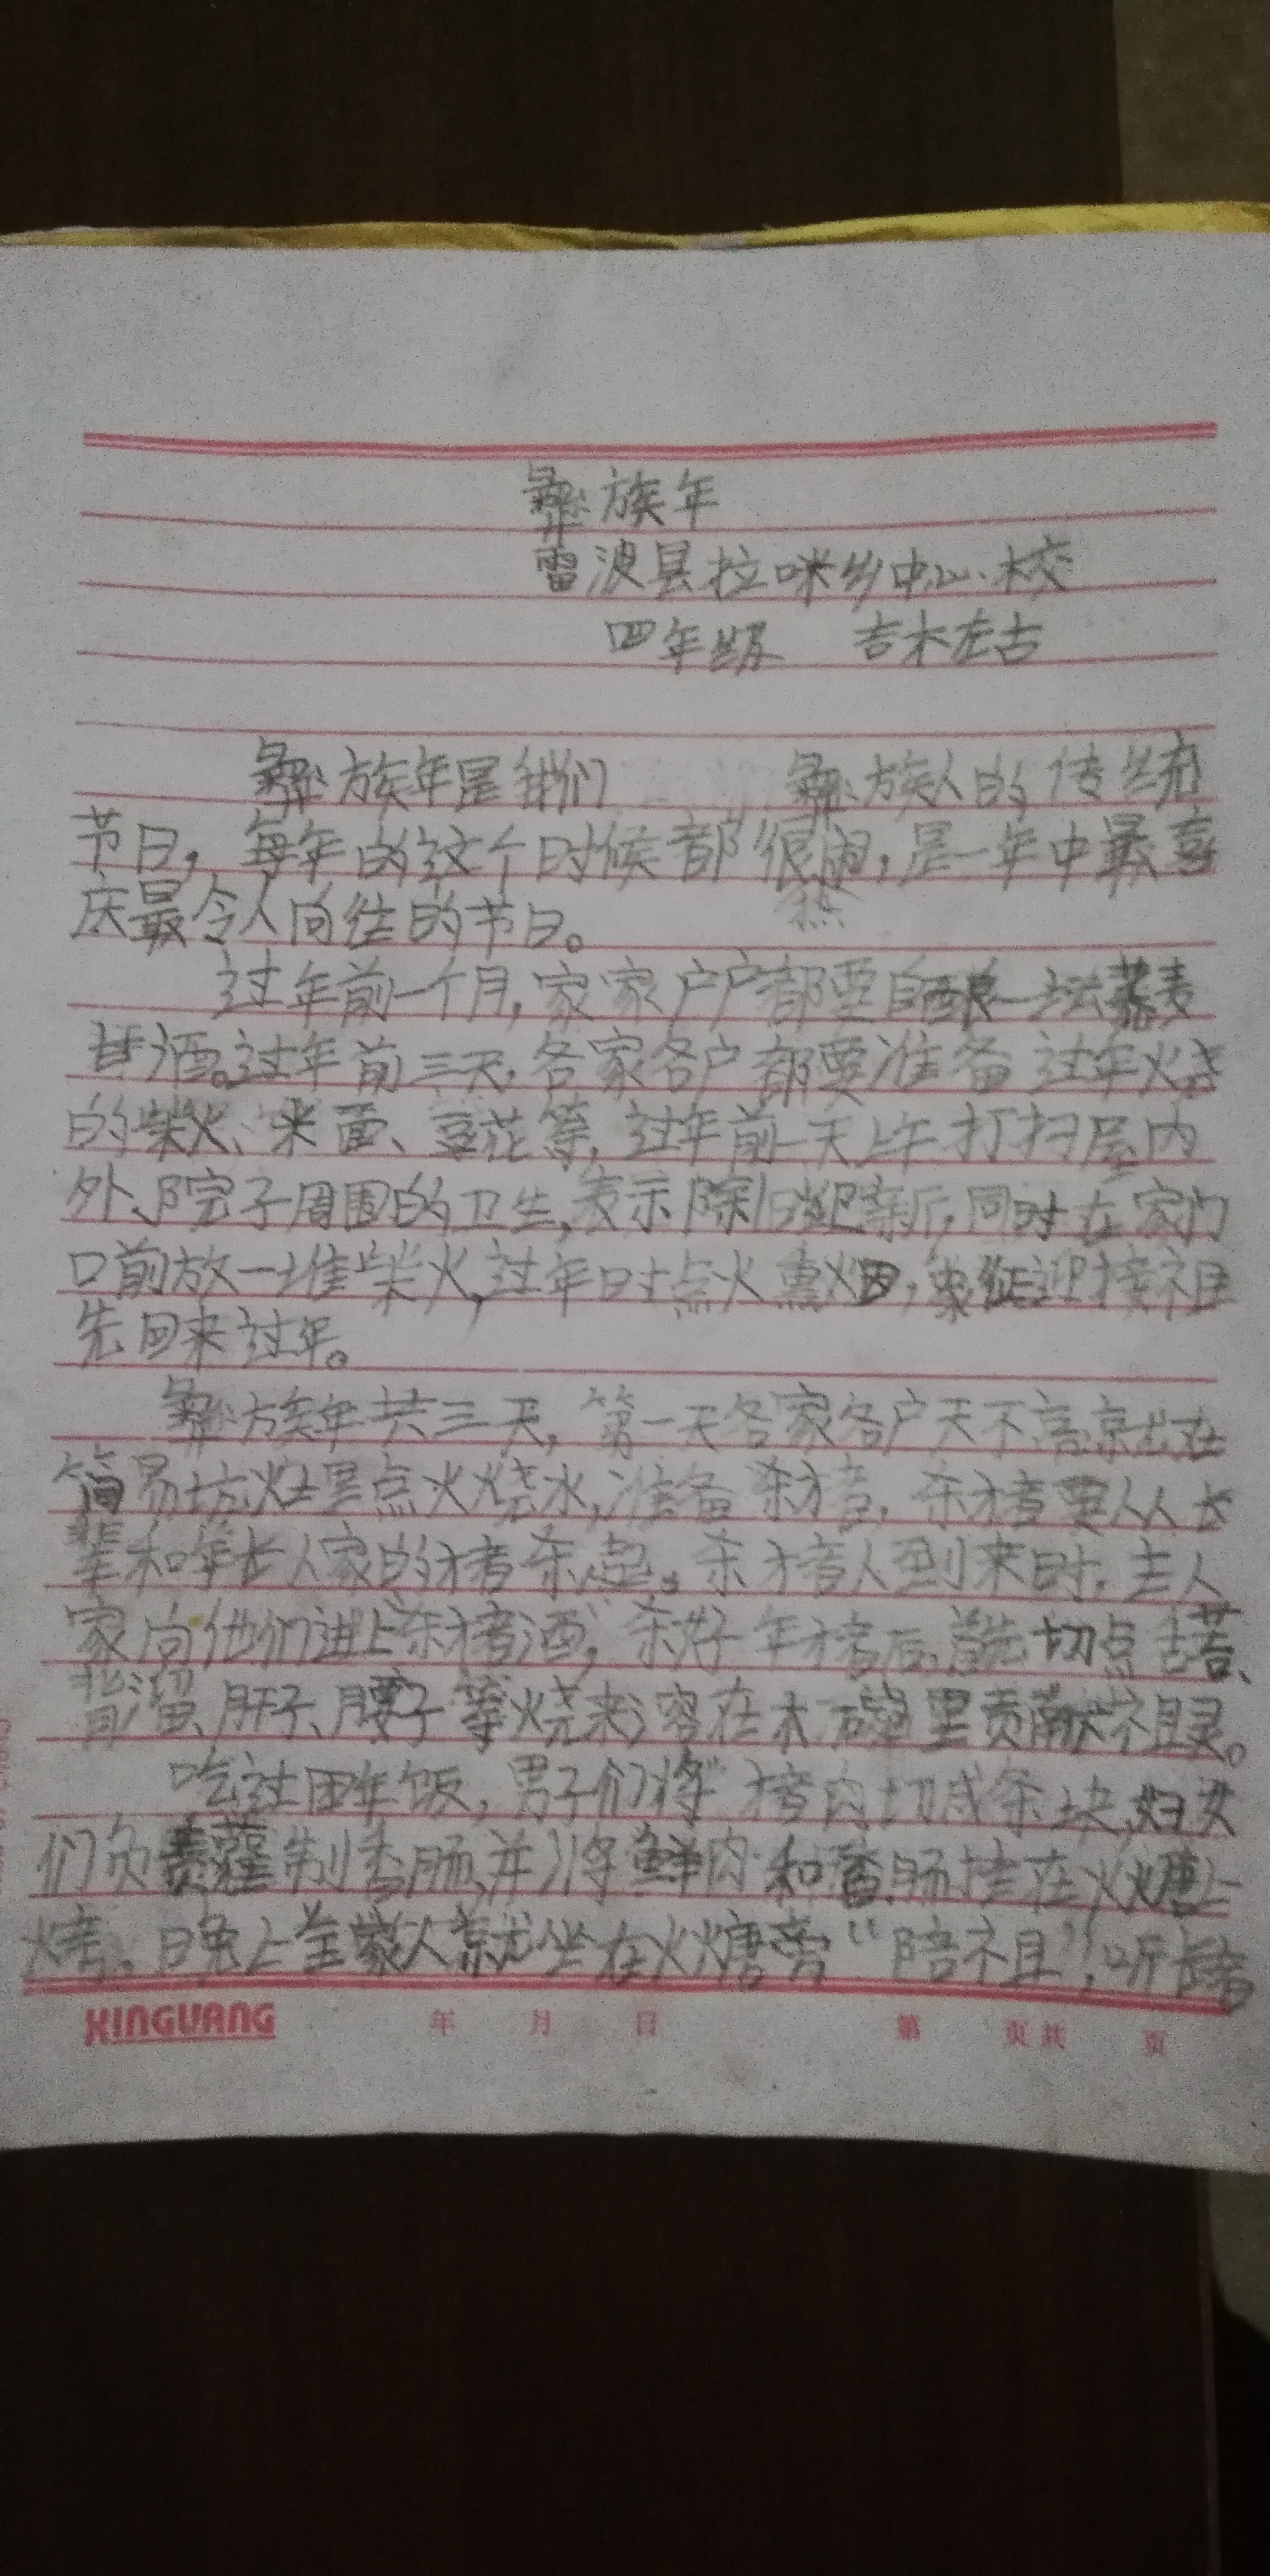 彝族年
雷波县拉咪乡中心校
四年级 吉木左古
彝族年是我们 彝族人的传统
节日，每年的这个时候都很热闹，是一年中最喜
庆最令人向往的节日。
过年前一个月，家家户户都要自酿一坛荞麦
甘酒。过年前三天，各家各户都要准备过年火烧
的柴火、米面、豆花等，过年前一天上午打扫屋内
外、院子周围的卫生，表示除旧迎新，同时在家门
口前放一堆柴火，过年时点火熏烟，象征迎接祖
先回来过年。
彝族年共三天，第一天各家各户天不亮就在
简易坊灶里点火烧水，准备杀猪，杀猪要人人长
辈和年长人家的猪杀起。杀猪人到来时，主人
家向他们进上"杀猪酒"，杀好年猪后，首先切点舌苔、
背溜、肝子、腰子等烧来溶在木碗里贡献祖灵。
吃过团年饭，男子们将猪肉切成条块，妇女
们负责灌制香肠，并将鲜肉和香肠挂在火塘上
烤。晚上全家人就坐在火塘旁"陪祖"，听长者
XINGUANG 年 月 日 第 页 共 页